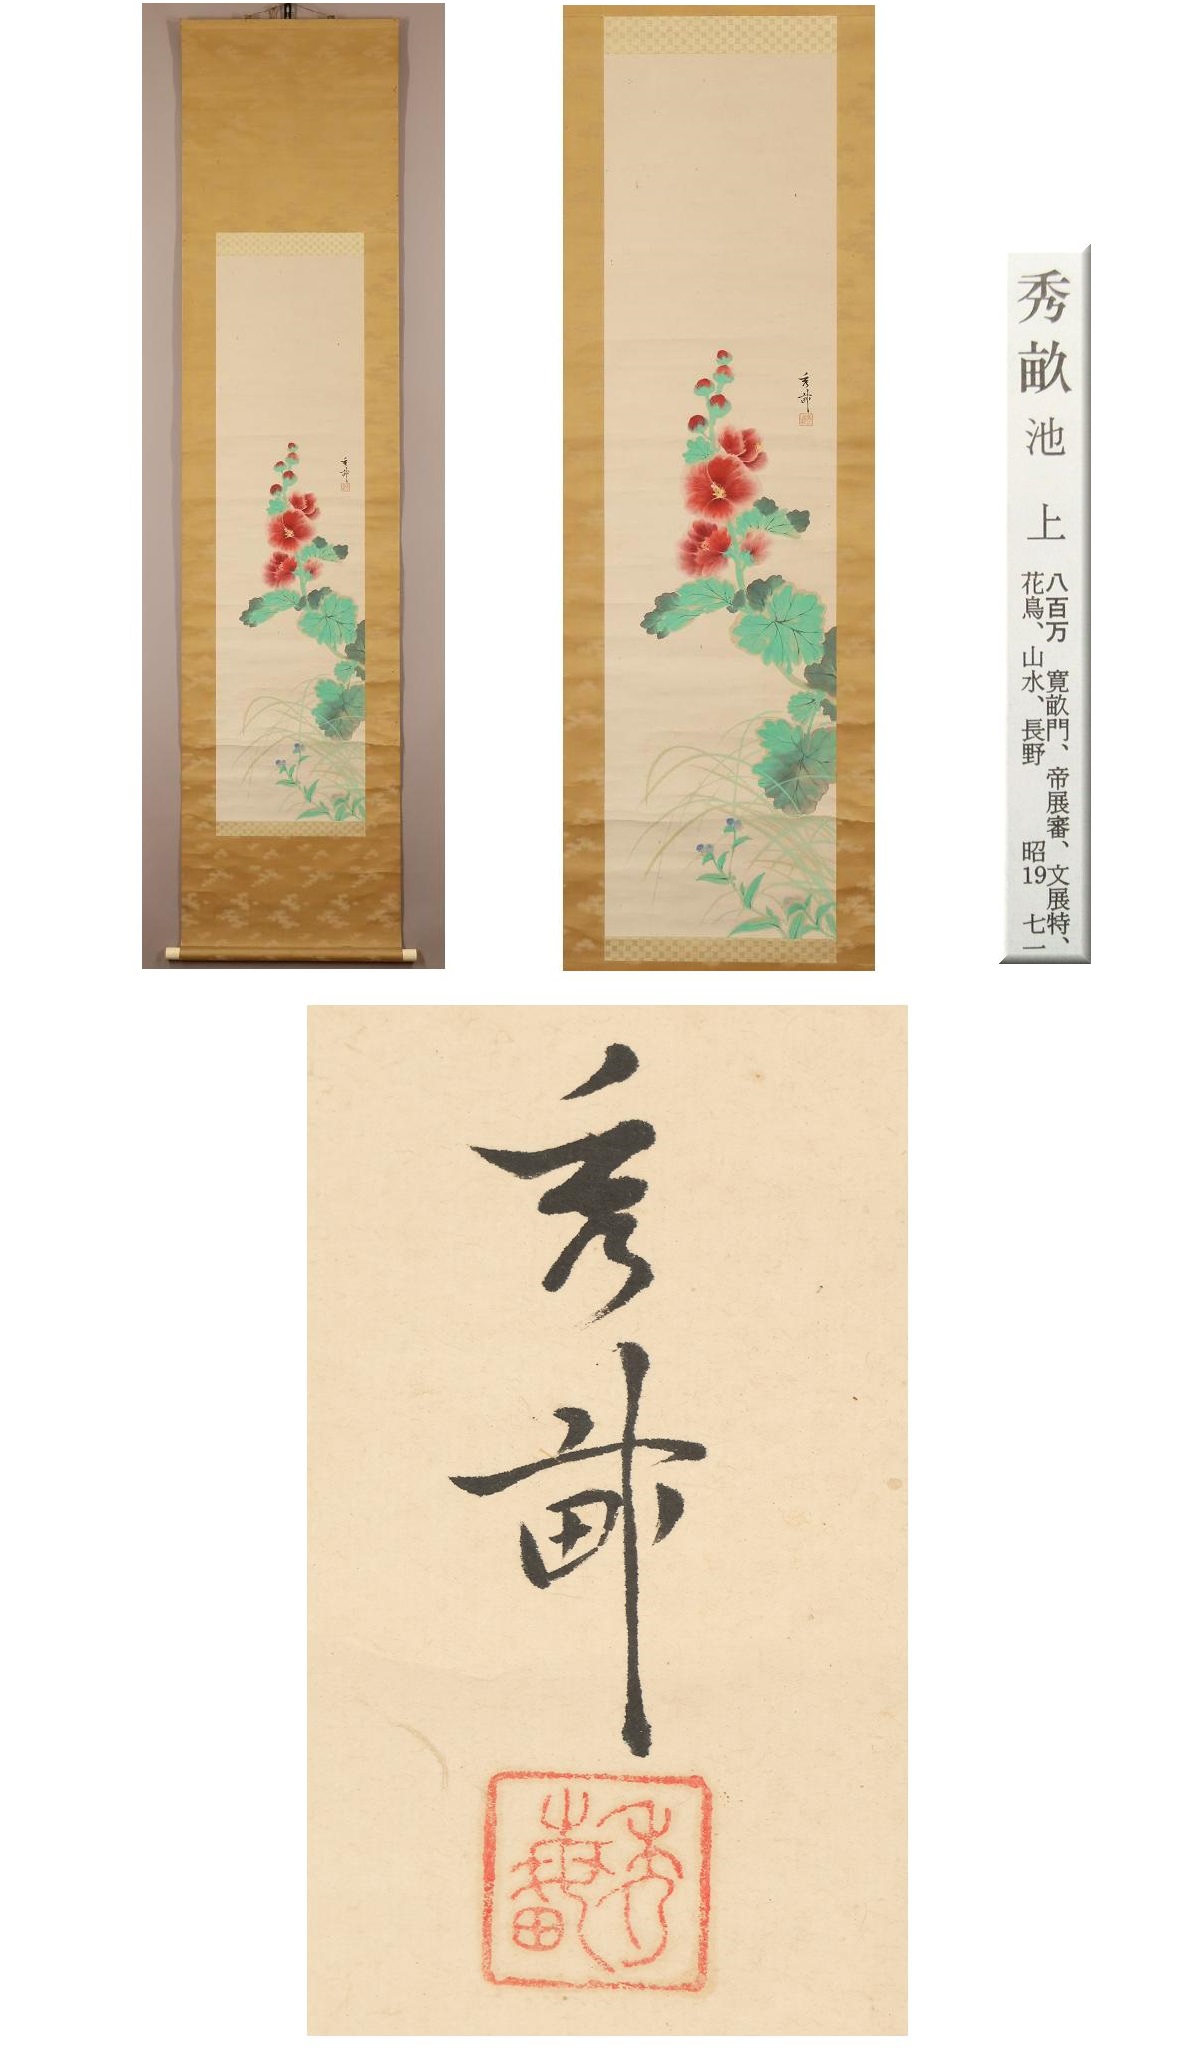 秀畝
秀畝
秀畝 池上
八百万 寛畝門、帝展審、文展特、
花鳥、山水、長野 昭19 七一
秀畝
秀畝